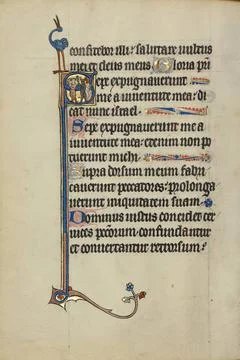 confitebor illi: salutare vultus
mei et deus meus Gloria pri
Sepe expugnaverunt
me a iuventute mea: di
cat nunc israel.
Sepe expugnaverunt me a
iuventute mea: etenim non po
tuerunt michi
Supra dorsum meum fabri
caverunt peccatores: prolonga
verunt iniquitatem suam
Dominus iustus concidet cer
vices peccorum: confundantur
et convertantur retrorsum: